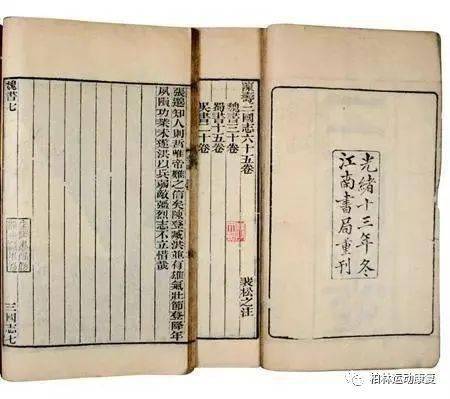 光緒十三年冬
江南書局重刊
陳壽三國志六十五卷
魏書三十卷
蜀書十五卷
吳書二十卷
裴松之注
張邈知人則哲唯帝難之信矣陳登臧洪並有雄氣壯節登降年
夙隕功業未遂洪以兵弱敵彊烈志不立惜哉
魏書七
三國志七
柏林运动康复